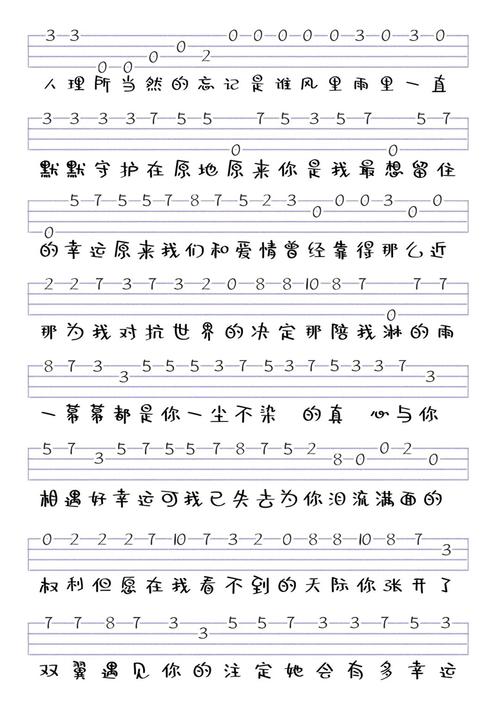 3 3 0 0 0 0 2 0 0 0 0 0 3 0 3 0
人理所当然的忘记是谁风里雨里一直
3 3 3 3 7 5 5 0 7 5 3 5 7 0 5 7
默默守护在原地原来你是我最想留住
0 5 7 5 5 7 8 7 5 2 3 0 0 0 3 0 0
的幸运原来我们和爱情曾经靠得那么近
2 2 7 3 7 3 2 0 8 8 10 8 7 0 7 7
那为我对抗世界的决定那陪我淋的雨
8 7 3 3 5 5 5 3 7 5 3 7 5 3 3 7 3
一幕幕都是你一尘不染 的真 心与你
5 7 3 5 7 5 5 7 8 7 5 2 8 0 0 2 0
相遇好幸运可我已失去为你泪流满面的
0 2 2 2 7 10 7 3 2 0 8 8 10 8 7 3
权利但愿在我看不到的天际你张开了
7 7 8 7 3 3 5 5 7 3 3 7 5 3
双翼遇见你的注定她会有多幸运